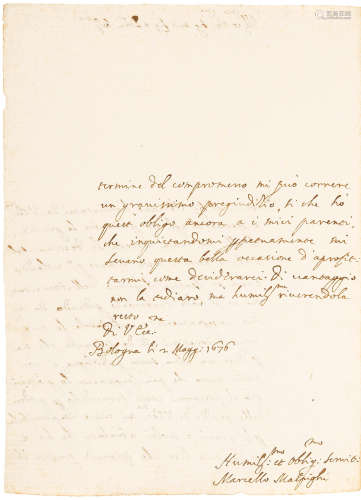 termine del compromesso mi può correre
un gravissimo pregiuditio, si che hò
quest'obligo ancora a i miei parenti,
che inquietandomi mi
levano questa bella occasione d'aprofit:
tarmi, come desiderarei. Di vantaggio
non la tediarò, mà humilmte riverendola
resto
Di V. Ecc.
Bologna li 2. Magg. 1676
Humilissmo et Oblig. Servit.
Marcello Malpighi